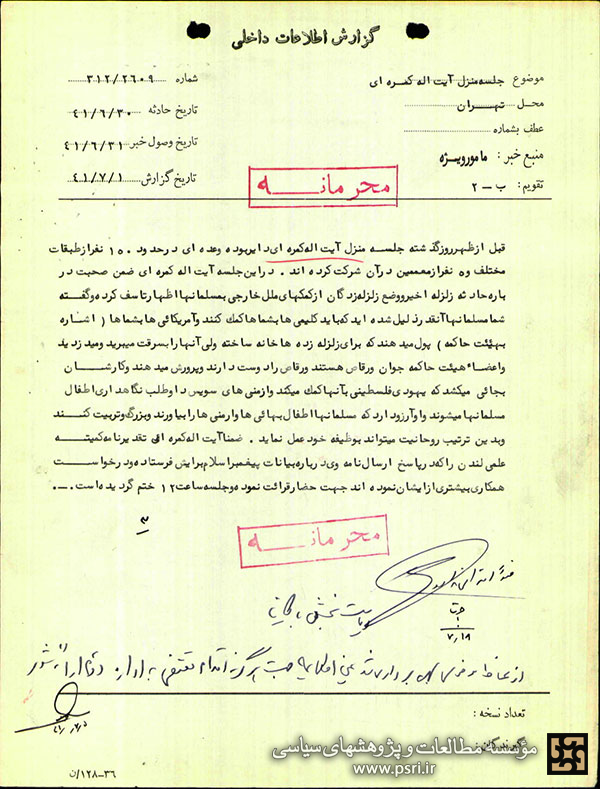 گزارش اطلاعات داخلی
موضوع جلسه منزل آیت اله کمره ای
شماره ۳۱۲/۲۶۰۹
محل تهران
تاریخ حادثه ۴۱/۶/۳۰
عطف بشماره
تاریخ وصول خبر ۴۱/۶/۳۱
منبع خبر: مامور ویژه
تاریخ گزارش ۴۱/۷/۱
تقویم: ب-۲
محرمانه
قبل از ظهر روز گذشته جلسه منزل آیت اله کمره ای دایر بوده و عده ای در حدود ۱۵۰ نفر از طبقات
مختلف و ۵ نفر از معممین در آن شرکت کرده اند . در این جلسه آیت اله کمره ای ضمن صحبت در
باره حادثه زلزله اخیر و وضع زلزله زدگان از کمکهای ملل خارجی بمسلمانها اظهار تاسف کرده و گفته
شما مسلمانها آنقدر ذلیل شده اید که باید کلیمی ها بشما ها کمک کنند و آمریکائی ها بشماها ( اشاره
بهیئت حاکمه ) پول میدهند که برای زلزله زده ها خانه ساخته ولی آنها را بسرقت میبرید و میدزدید
و اعضاء هیئت حاکمه جوان و رقاص هستند و رقاص را دوست دارند و پرورش میدهند و کارشان
بجائی میکشد که یهودی فلسطینی بآنها کمک میکند و از منی های سویس داوطلب نگاهداری اطفال
مسلمانها میشوند و او آرزو دارد که مسلمانها اطفال بهائی ها و ارمنی ها را بیاورند و بزرگ و تربیت کنند
و بدین ترتیب روحانیت میتواند بوظیفه خود عمل نماید . ضمنا آیت اله کمره ای تقدیر نامه کمیته
علمی لندن را که در پاسخ ارسال نامه وی درباره بیانات پیغمبر اسلام برایش فرستاده و درخواست
همکاری بیشتری از ایشان نموده اند جهت حضار قرائت نموده و جلسه ساعت ۱۲ ختم گردیده است .-.
۳
محرمانه
۷/۱۹
تعداد نسخه :
گیرندگان:
۱۲۸-۳۶/ن
مؤسسه مطالعات و پژوهشهای سیاسی
www.psri.ir